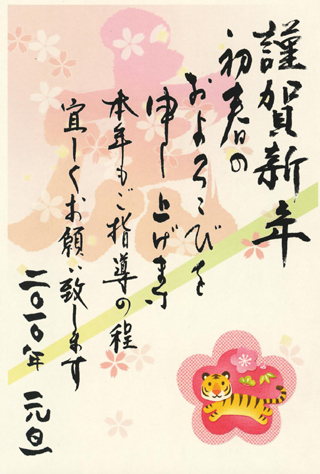 謹賀新年
初春の
およろこびを
申し上げます
本年もご指導の程
宜しくお願い致します
二〇一〇年 元旦